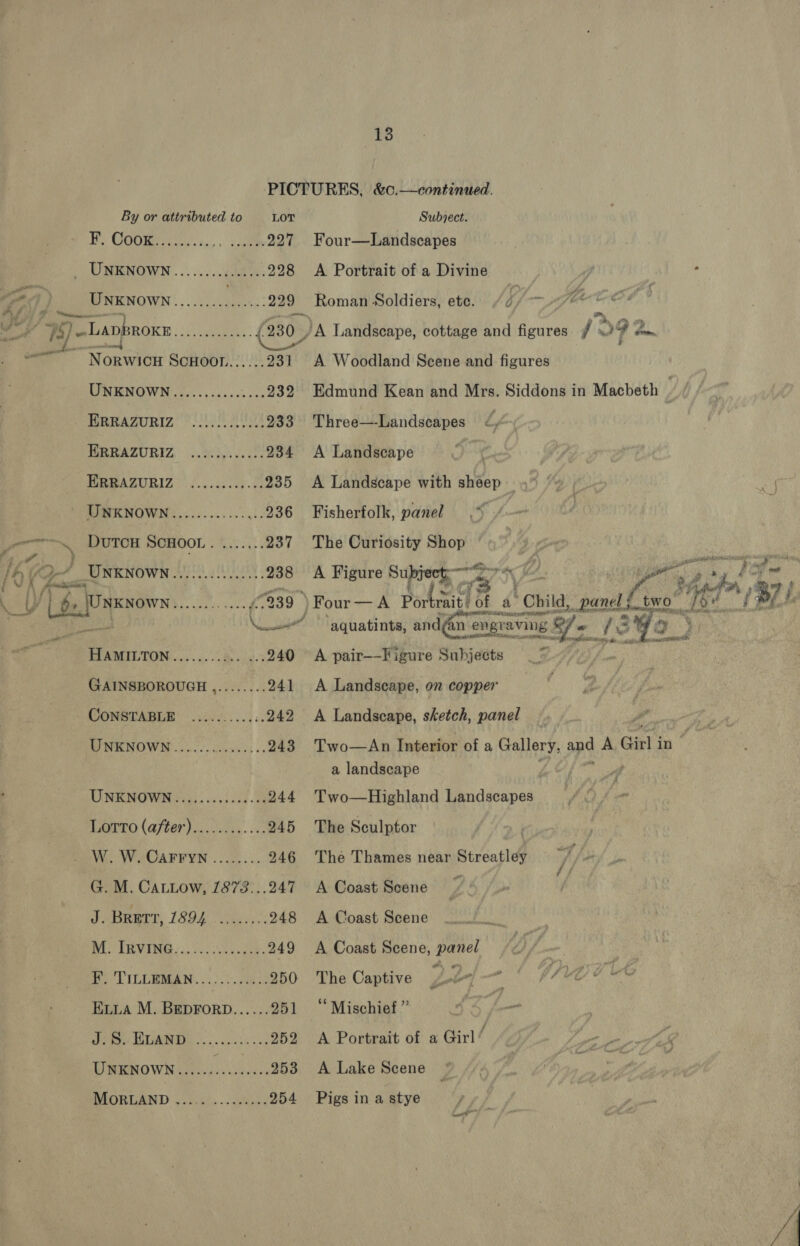 13
PICTURES, &c.—continued.
By or attributed to LOT Subject.
F. COOK.................. 227 Four—Landscapes
UNKNOWN............... 228 A Portrait of a Divine
UNKNOWN............... 229 Roman Soldiers, etc.
LADBROKE.............. 230 A Landscape, cottage and figures
NORWICH SCHOOL...... 231 A Woodland Scene and figures
UNKNOWN............... 232 Edmund Kean and Mrs. Siddons in Macbeth
ERRAZURIZ ............ 233 Three—Landscapes
ERRAZURIZ ............ 234 A Landscape
ERRAZURIZ ............ 235 A Landscape with sheep
UNKNOWN............... 236 Fisherfolk, panel
DUTCH SCHOOL........ 237 The Curiosity Shop
UNKNOWN............... 238 A Figure Subject
UNKNOWN............... 239 Four—A Portrait of a Child, panel, two
aquatints, and an engraving
HAMILTON............... 240 A pair—Figure Subjects
GAINSBOROUGH ........ 241 A Landscape, on copper
CONSTABLE ............ 242 A Landscape, sketch, panel
UNKNOWN............... 243 Two—An Interior of a Gallery, and A Girl in
a landscape
UNKNOWN............... 244 Two—Highland Landscapes
LOTTO (after)............ 245 The Sculptor
W. W. CAFFYN ........ 246 The Thames near Streatley
G. M. CALLOW, 1873...247 A Coast Scene
J. BRETT, 1894 ........ 248 A Coast Scene
M. IRVING............... 249 A Coast Scene, panel
F. TILLEMAN............ 250 The Captive
ELLA M. BEDFORD...... 251 “Mischief”
J. S. ELAND ............ 252 A Portrait of a Girl
UNKNOWN............... 253 A Lake Scene
MORLAND ............... 254 Pigs in a stye